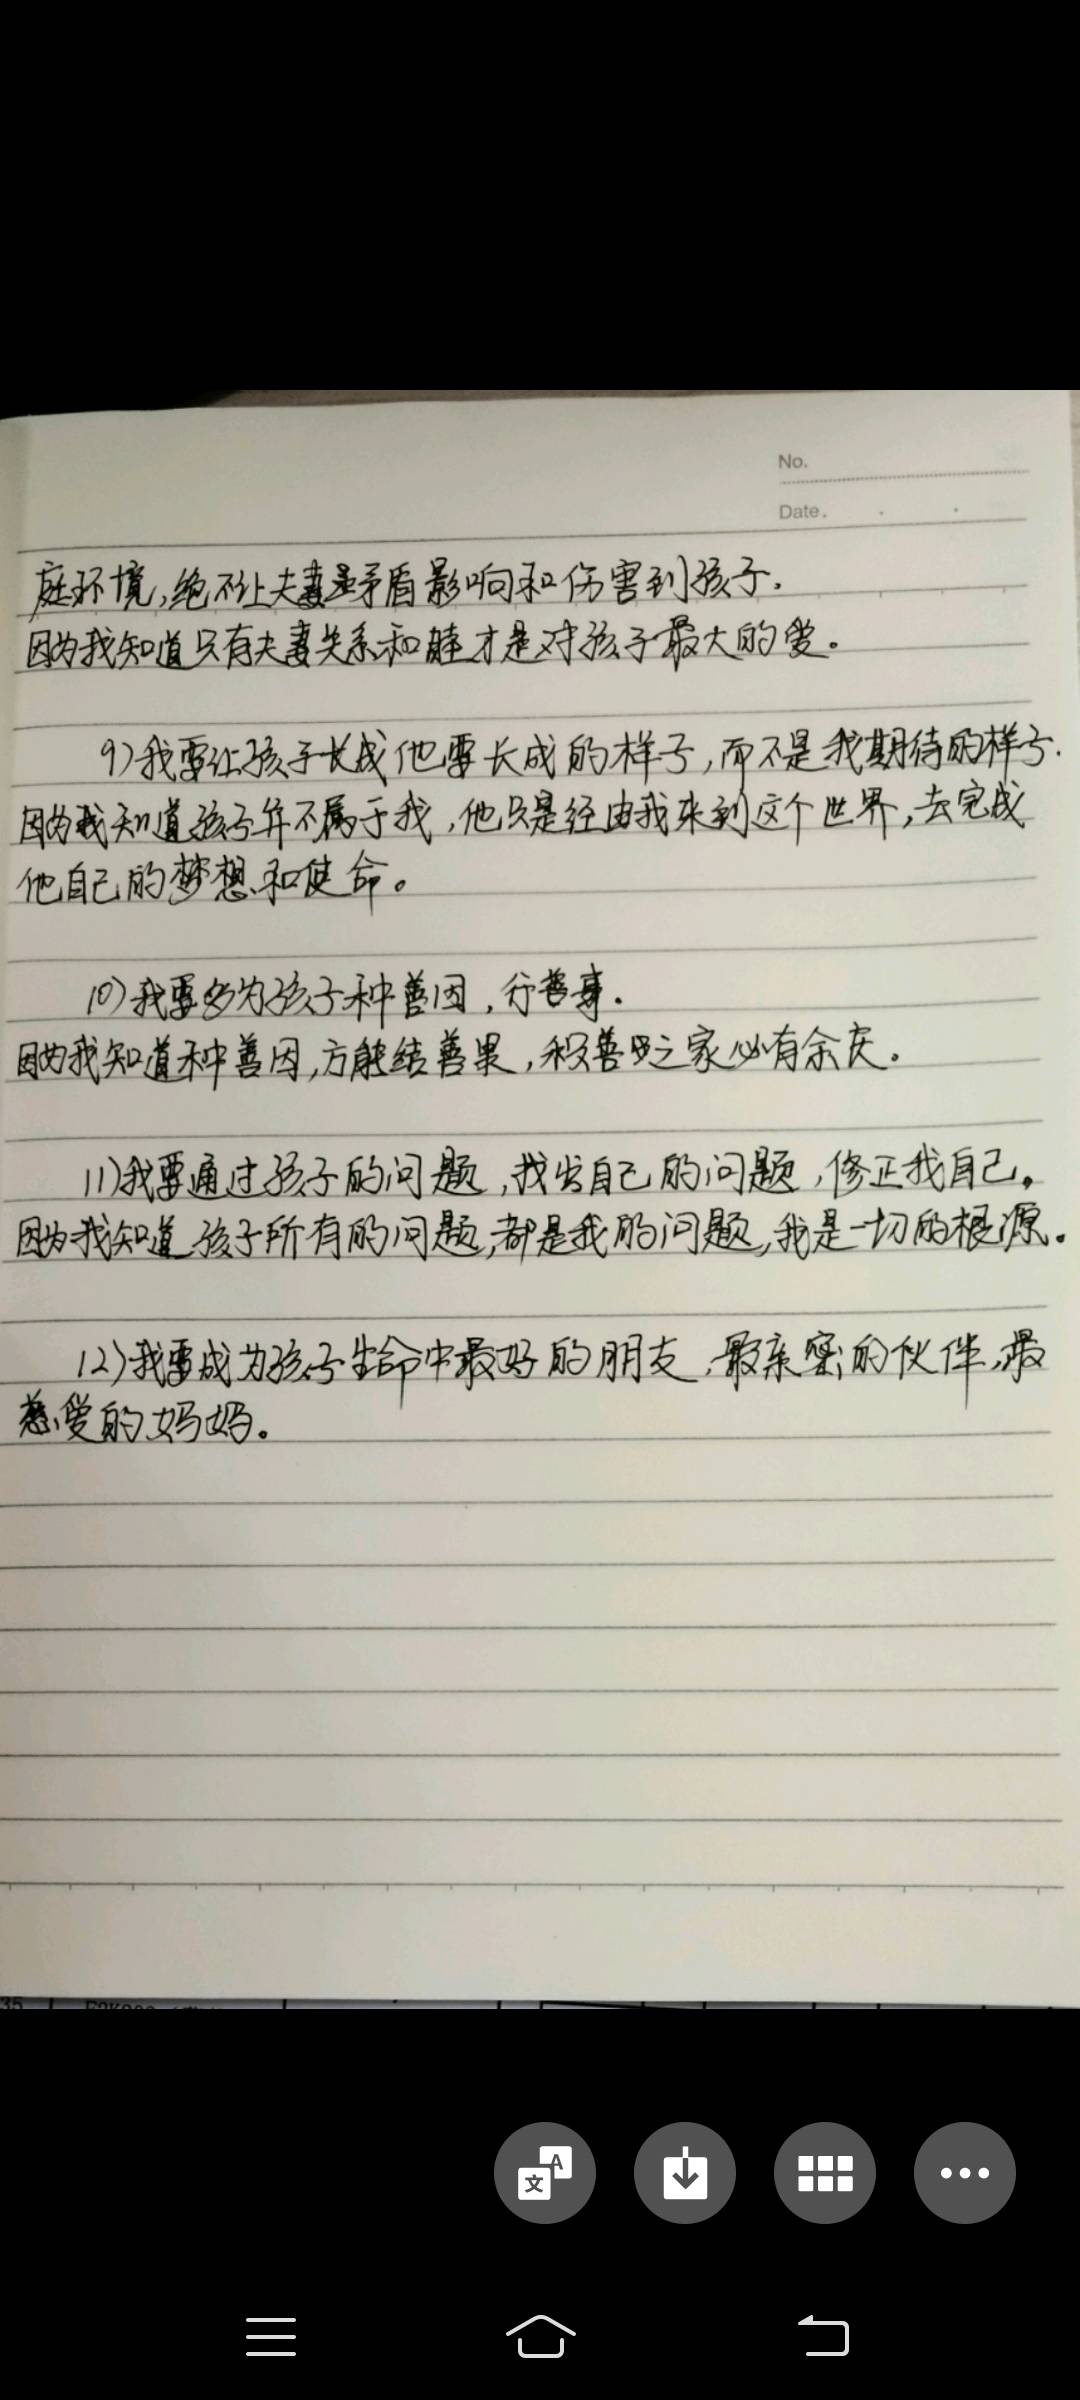 No.
Date.
庭环境,绝不让夫妻矛盾影响和伤害到孩子.
因为我知道只有夫妻关系和睦才是对孩子最大的爱。
9)我要让孩子长成他要长成的样子,而不是我期待的样子.
因为我知道孩子并不属于我,他只是经由我来到这个世界,去完成
他自己的梦想和使命。
10)我要多为孩子种善因,行善事.
因为我知道种善因,方能结善果,积善之家必有余庆.
11)我要通过孩子的问题,找出自己的问题,修正我自己。
因为我知道孩子所有的问题,都是我的问题,我是一切的根源。
12)我要成为孩子生命中最好的朋友,最亲密的伙伴,最
慈爱的妈妈。
35
文A